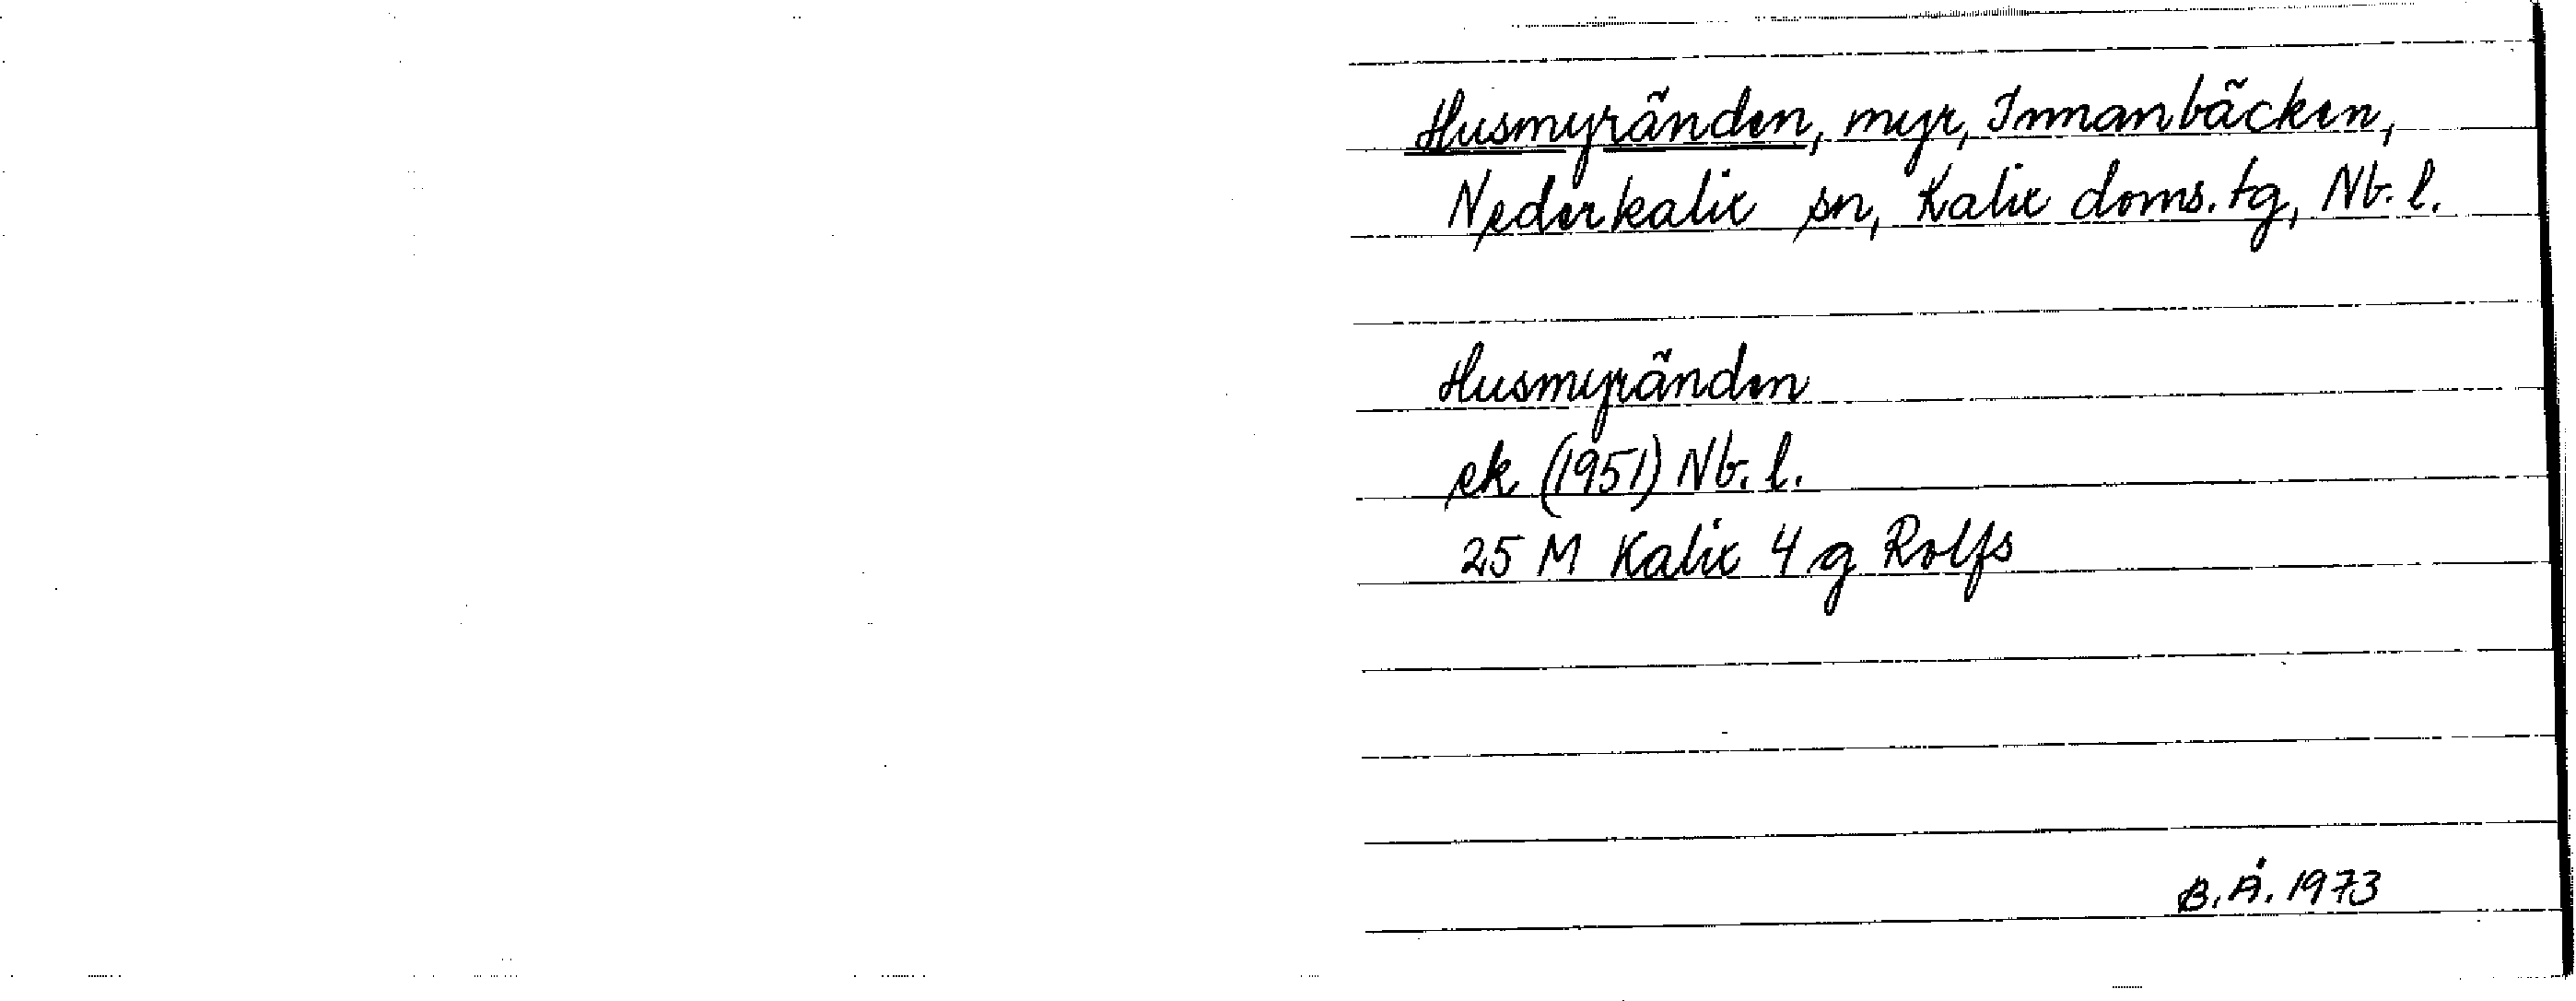 Husmyränden, myr, Innanbäcken,
Nederkalix sn, Kalix doms. tg, Nb. l.
Husmyränden
ek (1951) Nb. l.
25 M Kalix 4 g Rolfs
B. Å. 1973